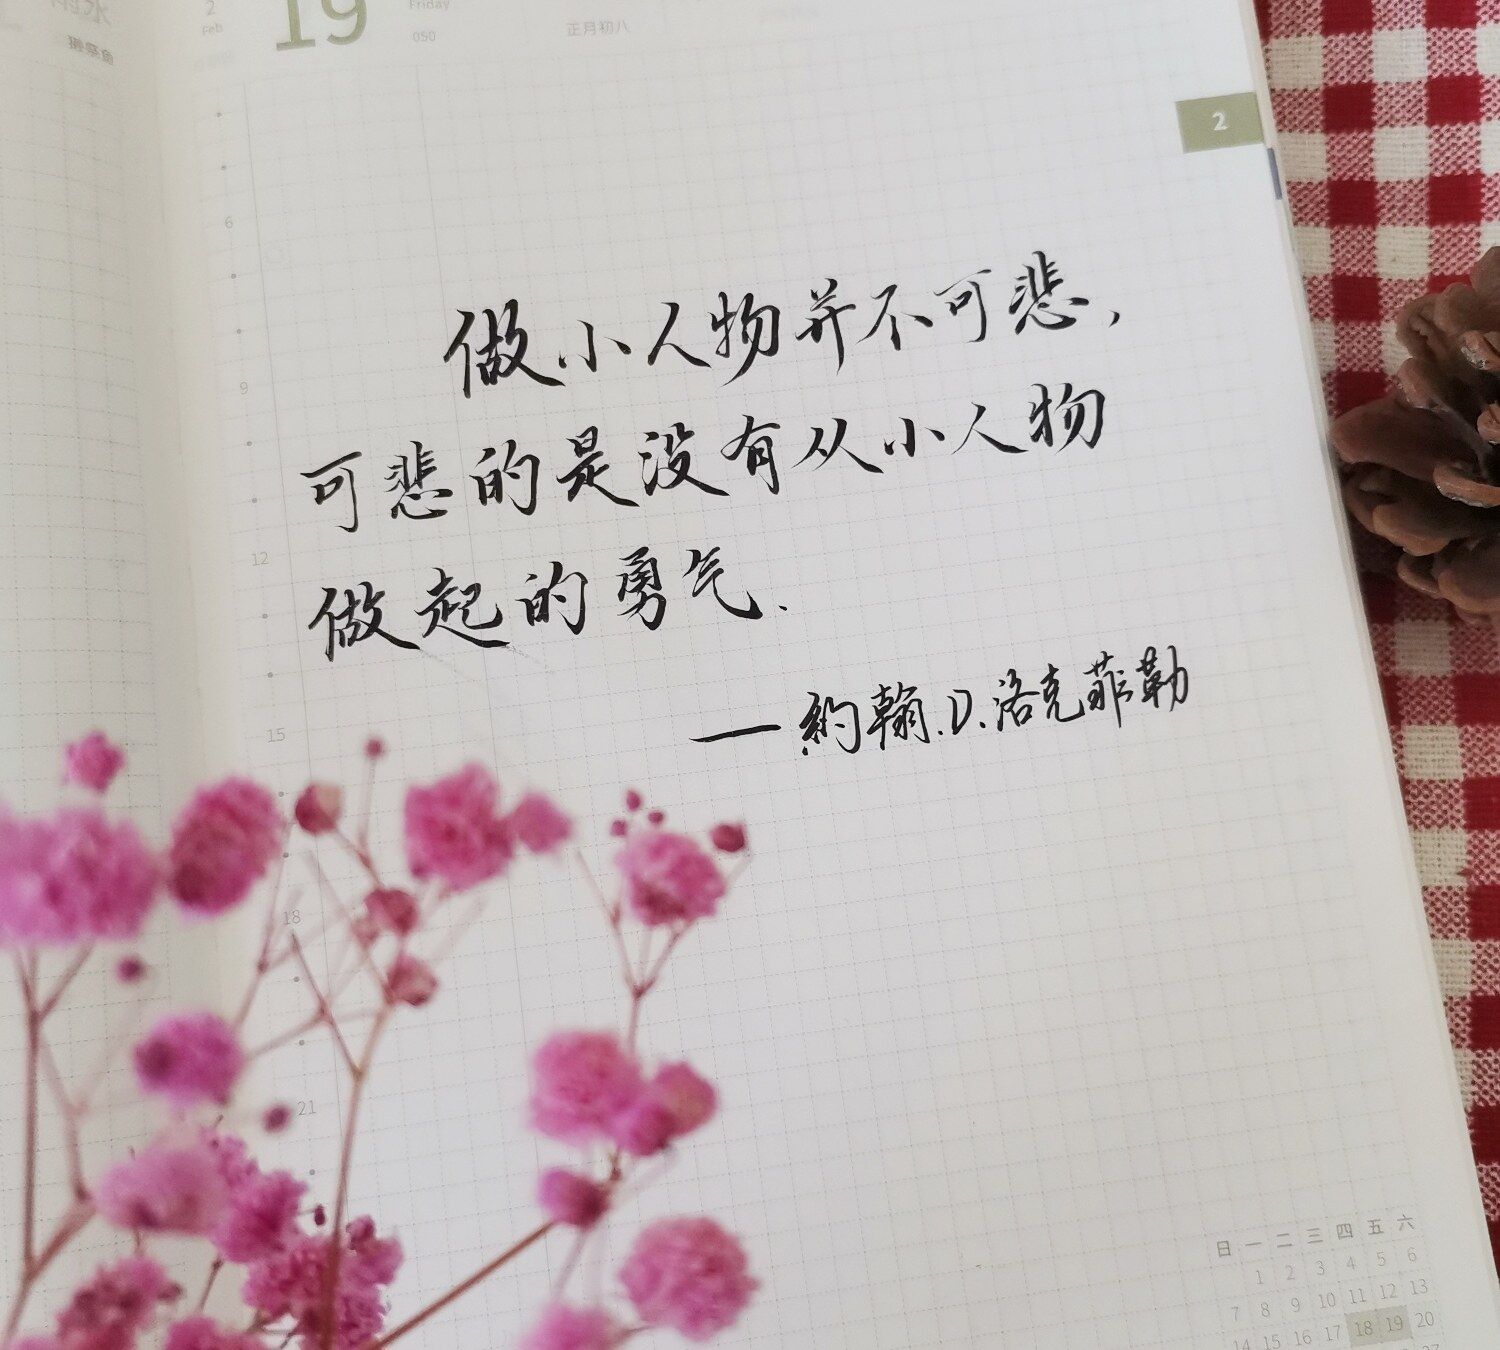 2
Feb
19
Friday
050
正月初八
2
6
9
12
15
18
21
做小人物并不可悲，
可悲的是没有从小人物
做起的勇气.
——約翰.D.洛克菲勒
日 一 二 三 四 五 六
1 2 3 4 5 6
7 8 9 10 11 12 13
14 15 16 17 18 19 20